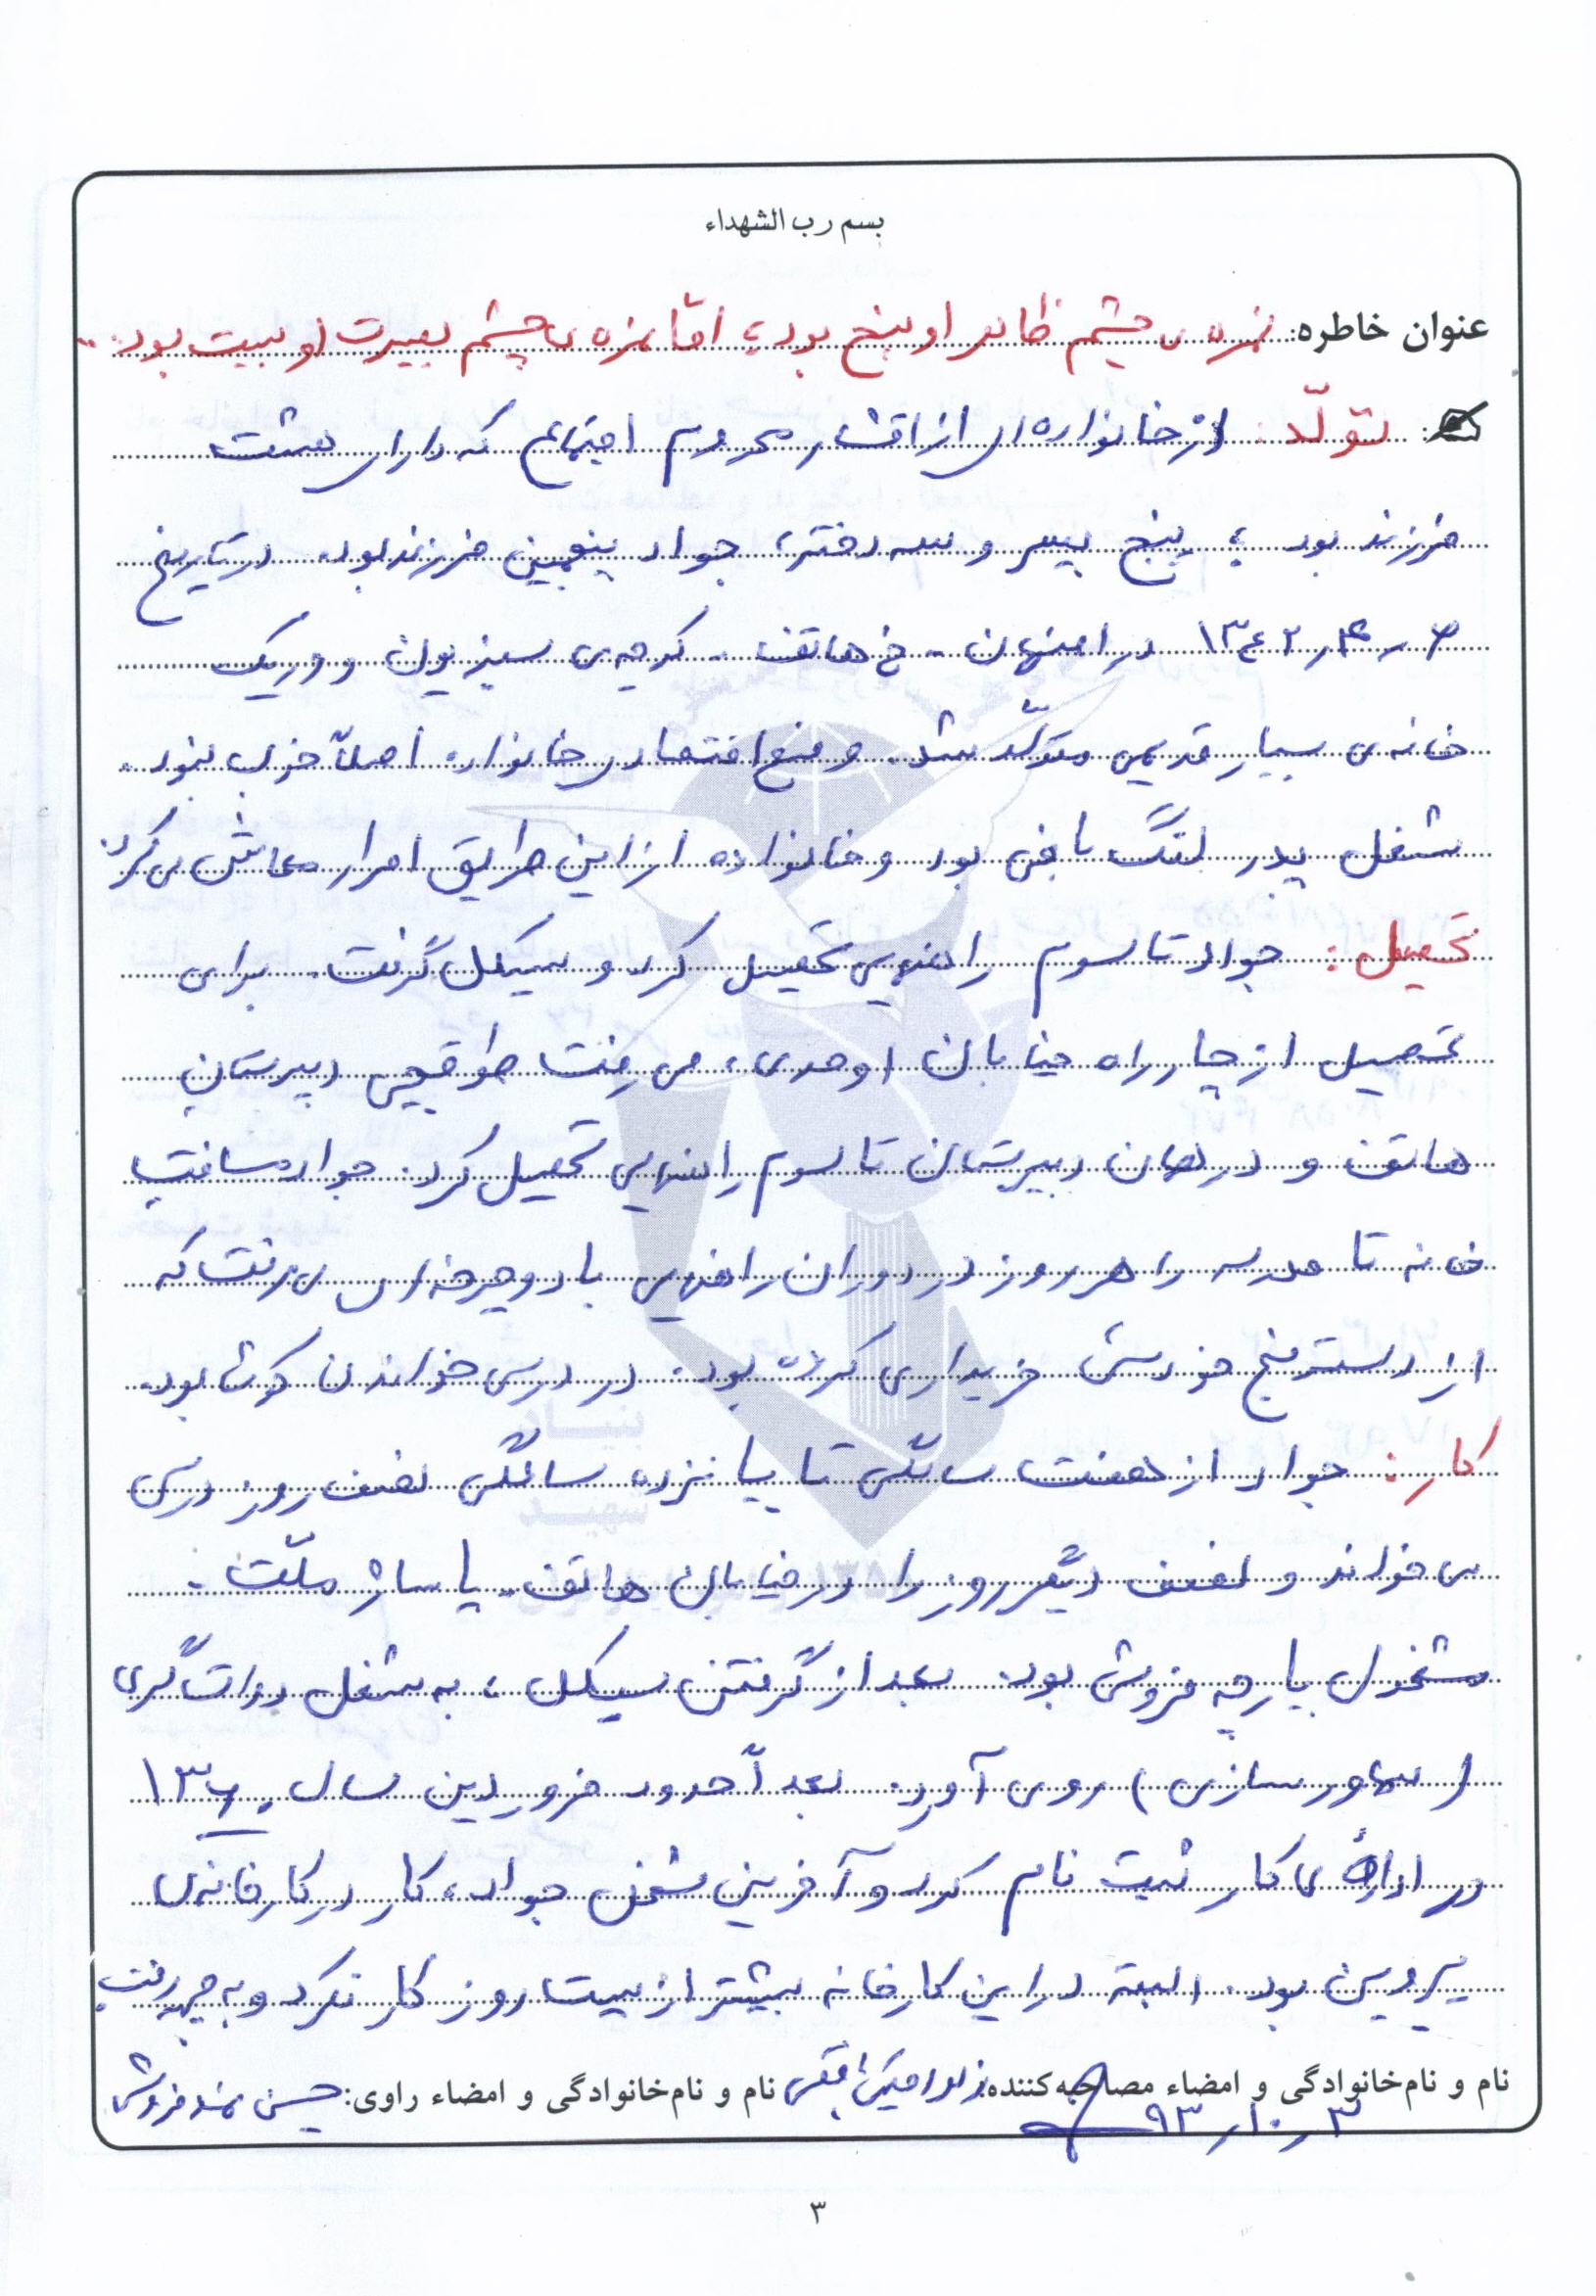 بسم رب الشهداء
عنوان خاطره: نمره‌ی چشم ظاهر او پنج بود؛ امّا نمره‌ی چشم بصیرت او بیست بود..
تولّد: از خانواده‌ای از اقشار محروم اجتماع که دارای هشت
فرزند بود؛ پنج پسر و سه دختر، جواد پنجمین فرزند بود. در تاریخ
در اصفهان - خ هاتف - کوچه‌ی سبزیون و در یک
خانه‌ی بسیار قدیمی متولّد شد. وضع اقتصادی خانواده اصلاً خوب نبود.
شغل پدر لنگ بافی بود و خانواده از این طریق امرار معاش می‌کرد.
تحصیل: جواد تا سوم راهنمایی تحصیل کرد و سیکل گرفت. برای
تحصیل از چار راه خیابان اوحدی، می‌رفت طوقچی دبیرستان
هاتف و در همان دبیرستان تا سوم راهنمایی تحصیل کرد. جواد مسافت
خانه تا مدرسه را هر روز در دوران راهنمایی با دوچرخه‌ای می‌رفت که
از دسترنج خودش خریداری کرده بود. در درس خواندن کوشا بود.
کار: جواد از هفت سالگی تا پانزده سالگی نصف روز درس
می‌خواند و نصف دیگر روز را در خیابان هاتف - پاساژ ملّت -
مشغول پارچه فروشی بود. بعد از گرفتن سیکل، به شغل دوات‌گری
(سماور سازی) روی آورد. بعداً حدود فروردین سال ۱۳۶۰
در اداره‌ی کار ثبت نام کرد و آخرین شغل جواد، کار در کارخانه‌ی
پروین بود. البته در این کارخانه بیشتر از بیست روز کار نکرد و به جبهه رفت
نام و نام‌خانوادگی و امضاء مصاحبه‌کننده: زهرا نام و نام‌خانوادگی و امضاء راوی: حسن
۹۳/۱۰/۳
۳